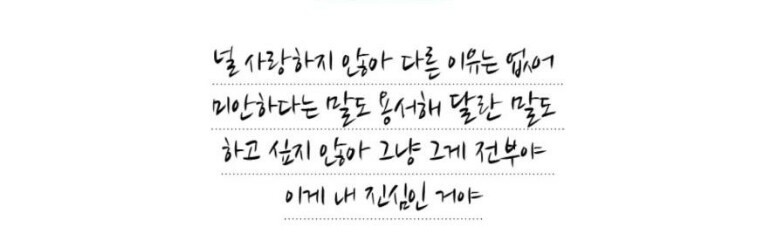 널 사랑하지 않아 다른 이유는 없어
미안하다는 말도 용서해 달란 말도
하고 싶지 않아 그냥 그게 전부야
이게 내 진심인 거야